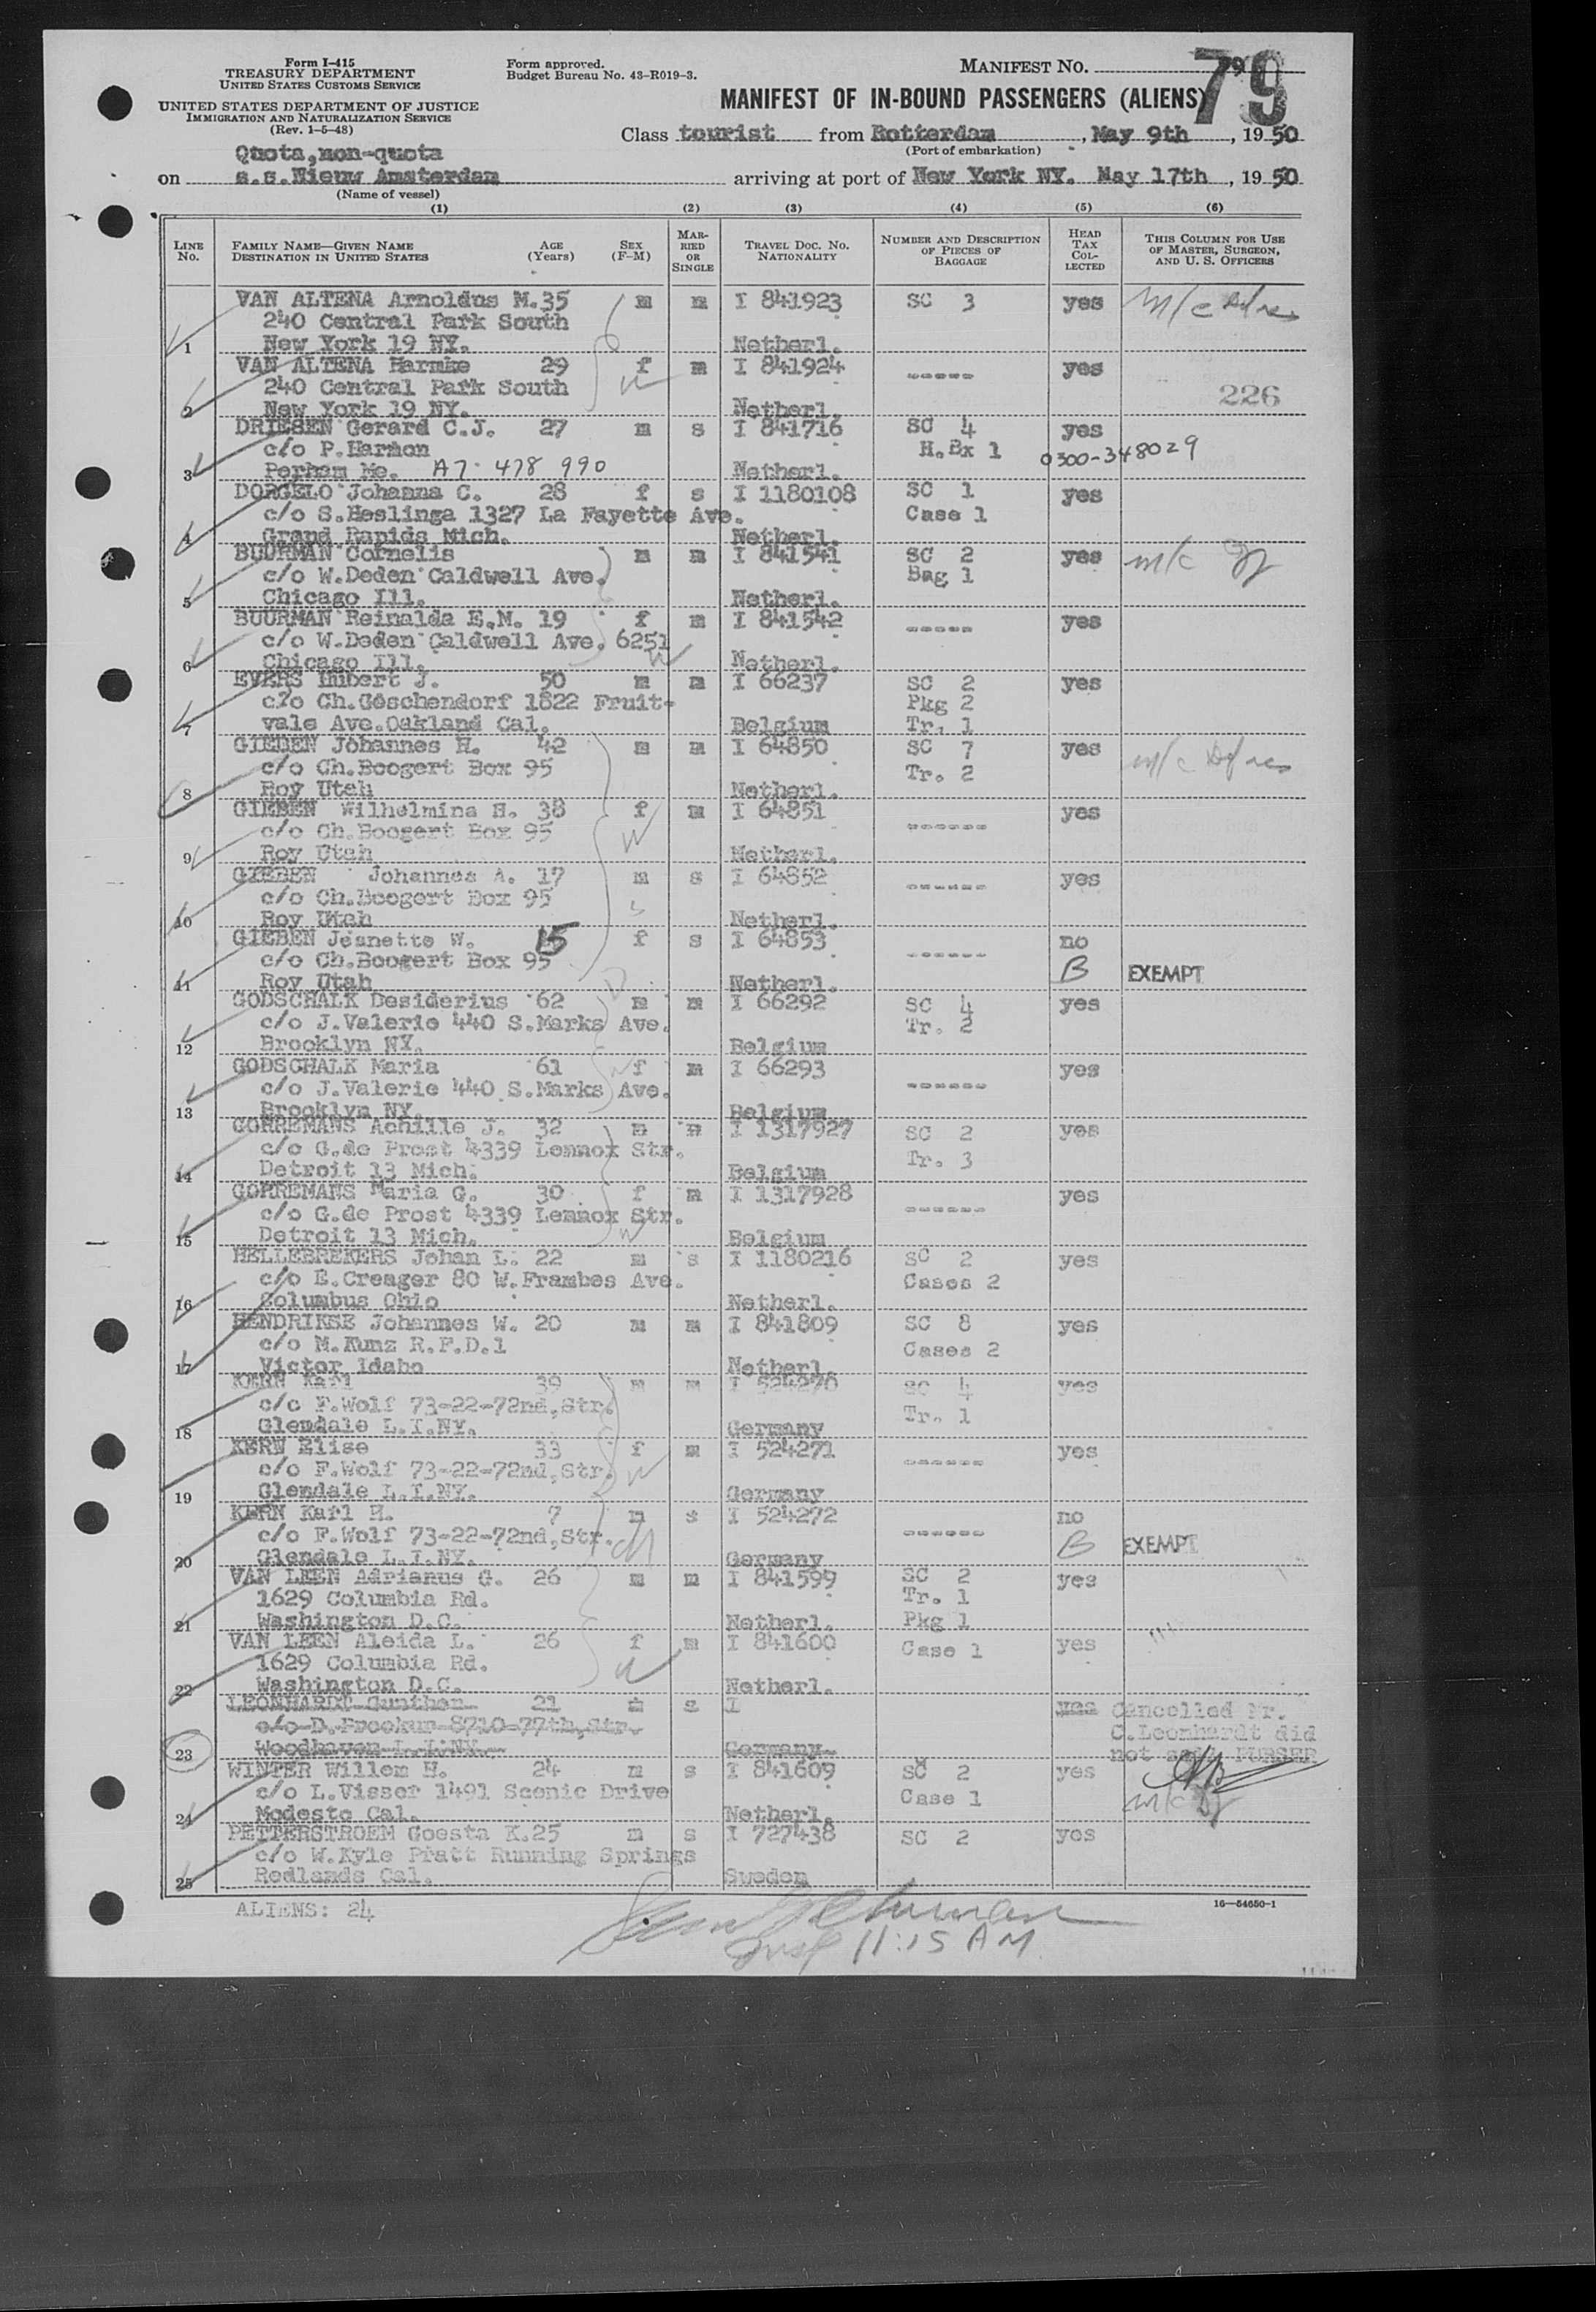 Form I-415
TREASURY DEPARTMENT
UNITED STATES CUSTOMS SERVICE
UNITED STATES DEPARTMENT OF JUSTICE
IMMIGRATION AND NATURALIZATION SERVICE
(Rev. 1-5-48)
Form approved.
Budget Bureau No. 43-R019-3.
MANIFEST NO. 79
MANIFEST OF IN-BOUND PASSENGERS (ALIENS)
Class tourist from Rotterdam, May 9th, 1950
(Port of embarkation)
Quota, non-quota
on s.s. Nieuw Amsterdam arriving at port of New York NY. May 17th, 1950
(Name of vessel)
(1) (2) (3) (4) (5) (6)
LINE No. FAMILY NAME—GIVEN NAME DESTINATION IN UNITED STATES AGE (Years) SEX (F-M) MARRIED OR SINGLE TRAVEL DOC. NO. NATIONALITY NUMBER AND DESCRIPTION OF PIECES OF BAGGAGE HEAD TAX COLLECTED THIS COLUMN FOR USE OF MASTER, SURGEON, AND U. S. OFFICERS
VAN ALTENA Arnoldus M. 35 m m I 841923 SC 3 yes m/c
240 Central Park South
1 New York 19 NY. Netherl.
VAN ALTENA Harmke 29 f m I 841924 ----- yes
240 Central Park South 226
2 New York 19 NY. Netherl.
DRIESEN Gerard C.J. 27 m s I 841716 SC 4 yes
c/o P.Harmon H.Bx 1 0300-348029
3 Perham Me. A7 478 990 Netherl.
DORGELO Johanna C. 28 f s I 1180108 SC 1 yes
c/o S.Heslinga 1327 La Fayette Ave. Case 1
4 Grand Rapids Mich. Netherl.
BUURMAN Cornelis m m I 841541 SC 2 yes m/c
c/o W.Deden Caldwell Ave. Bag 1
5 Chicago Ill. Netherl.
BUURMAN Reinalda E.M. 19 f m I 841542 ----- yes
c/o W.Deden Caldwell Ave. 6251
6 Chicago Ill. Netherl.
EVERS Hubert J. 50 m m I 66237 SC 2 yes
c/o Ch.Goschendorf 1822 Fruit- Pkg 2
7 vale Ave.Oakland Cal. Belgium Tr. 1
GIEBEN Johannes H. 42 m m I 64850 SC 7 yes m/c
c/o Ch.Boogert Box 95 Tr. 2
8 Roy Utah Netherl.
GIEBEN Wilhelmina H. 38 f m I 64851 ------ yes
c/o Ch.Boogert Box 95
9 Roy Utah Netherl.
GIEBEN Johannes A. 17 m s I 64852 ------ yes
c/o Ch.Boogert Box 95
10 Roy Utah Netherl.
GIEBEN Jeanette W. 15 f s I 64853 ------ no
c/o Ch.Boogert Box 95 B EXEMPT
11 Roy Utah Netherl.
GODSCHALK Desiderius 62 m m I 66292 SC 4 yes
c/o J.Valerie 440 S.Marks Ave. Tr. 2
12 Brooklyn NY. Belgium
GODSCHALK Maria 61 f m I 66293 ------ yes
c/o J.Valerie 440 S.Marks Ave.
13 Brooklyn NY. Belgium
GORREMANS Achille J. 32 m m I 1317927 SC 2 yes
c/o G.de Prost 4339 Lennox Str. Tr. 3
14 Detroit 13 Mich. Belgium
GORREMANS Maria G. 30 f m I 1317928 ------ yes
c/o G.de Prost 4339 Lennox Str.
15 Detroit 13 Mich. Belgium
HELLEBREKERS Johan L. 22 m s I 1180216 SC 2 yes
c/o E.Creager 80 W.Frambes Ave. Cases 2
16 Columbus Ohio Netherl.
HENDRIKSE Johannes W. 20 m m I 841809 SC 8 yes
c/o M.Kunz R.F.D.1 Cases 2
17 Victor Idaho Netherl.
KERN Karl 39 m m I 524270 SC 4 yes
c/o F.Wolf 73-22-72nd,Str. Tr. 1
18 Glendale L.I.NY. Germany
KERN Elise 33 f m I 524271 ------ yes
c/o F.Wolf 73-22-72nd,Str.
19 Glendale L.I.NY. Germany
KERN Karl H. 7 m s I 524272 ------ no
c/o F.Wolf 73-22-72nd,Str. B EXEMPT
20 Glendale L.I.NY. Germany
VAN LEEN Adrianus G. 26 m m I 841599 SC 2 yes
1629 Columbia Rd. Tr. 1
21 Washington D.C. Netherl. Pkg 1
VAN LEEN Aleida L. 26 f m I 841600 Case 1 yes
1629 Columbia Rd.
22 Washington D.C. Netherl.
LEONHARDT Gunther 21 m s I yes Cancelled Mr.
c/o D. 8710-77th,Str. C.Leonhardt did
23 Woodhaven L.I.NY. Germany not PURSER
WINTER Willem H. 24 m s I 841609 SC 2 yes
c/o L.Visser 1491 Scenic Drive Case 1 m/c
24 Modesto Cal. Netherl.
PETTERSTROEM Goesta K.25 m s I 727438 SC 2 yes
c/o W.Kyle Pratt Running Springs
25 Redlands Cal. Sweden
ALIENS: 24
16—54650-1
11:15 AM